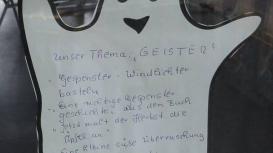 unser Thema: „GEISTER"
- Gespenster - Windlichter
basteln
- Eine richtige Gespenster
geschichte aus dem Buch
malt der Herbst die
an"
- Eine kleine süße Überraschung